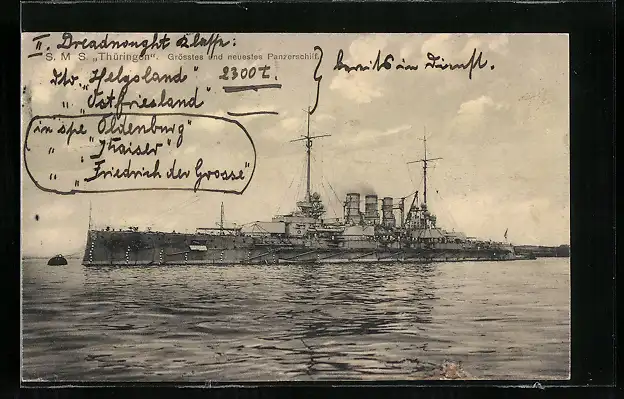 II. Dreadnought Klasse:
S. M. S. „Thüringen". Grösstes und neuestes Panzerschiff.
dto. „Helgoland" 2300 t.
" „Ostfriesland"
bereits in Dienst.
in spe „Oldenburg"
" „Kaiser"
" „Friedrich der Grosse"